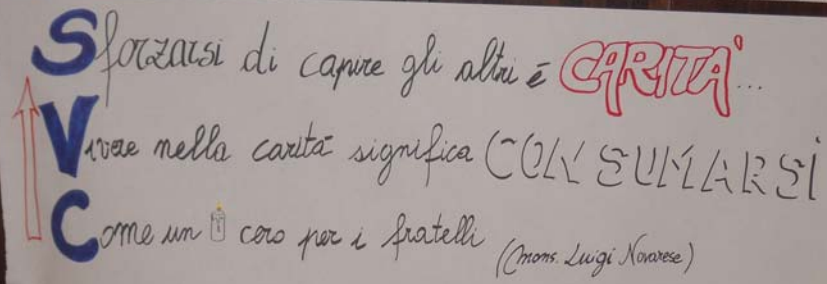 Sforzarsi di capire gli altri è CARITA'...
Vivere nella carità significa CONSUMARSI
Come un cero per i fratelli (mons. Luigi Novarese)